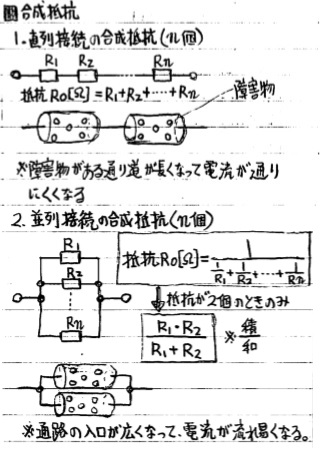 合成抵抗
1.直列接続の合成抵抗(n個)
R₁ R₂ Rn
抵抗R₀[Ω]=R₁+R₂+……+Rn 障害物
※障害物がある通り道が長くなって電流が通り
にくくなる
2.並列接続の合成抵抗(n個)
R₁
R₂
Rn
抵抗R₀[Ω]=1/(1/R₁+1/R₂+…+1/Rn)
抵抗が2個のときのみ
R₁・R₂/(R₁+R₂) ※積/和
※通路の入口が広くなって、電流が流れ易くなる。